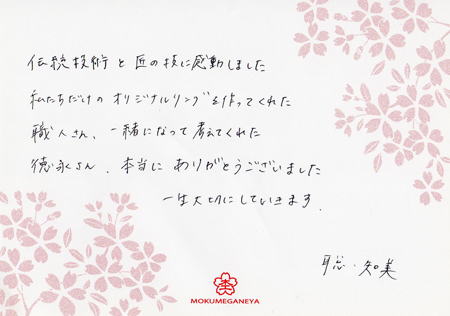 伝統技術と匠の技に感動しました
私たちだけのオリジナルリングを作ってくれた
職人さん、一緒になって考えてくれた
徳永さん、本当にありがとうございました
一生大切にしていきます.
聡・知美
MOKUMEGANEYA